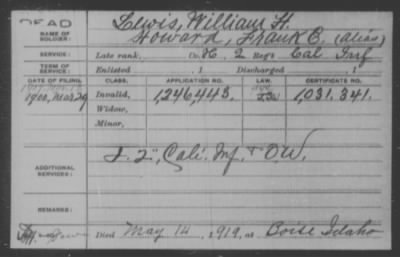 DEAD
NAME OF SOLDIER: Lewis, William H.
Howard, Frank C. (alias)
SERVICE: Late rank, Co. H, 2 Reg't Cal Inf
TERM OF SERVICE: Enlisted , 1 Discharged , 1
DATE OF FILING. CLASS. APPLICATION NO. LAW. CERTIFICATE NO.
1900, Mar 29 Invalid, 1,246,443. 1,031.341.
Widow,
Minor,
ADDITIONAL SERVICES: I. 2", Cali. Inf. & O.W.
REMARKS:
Died May 14, 1919, at Boise Idaho